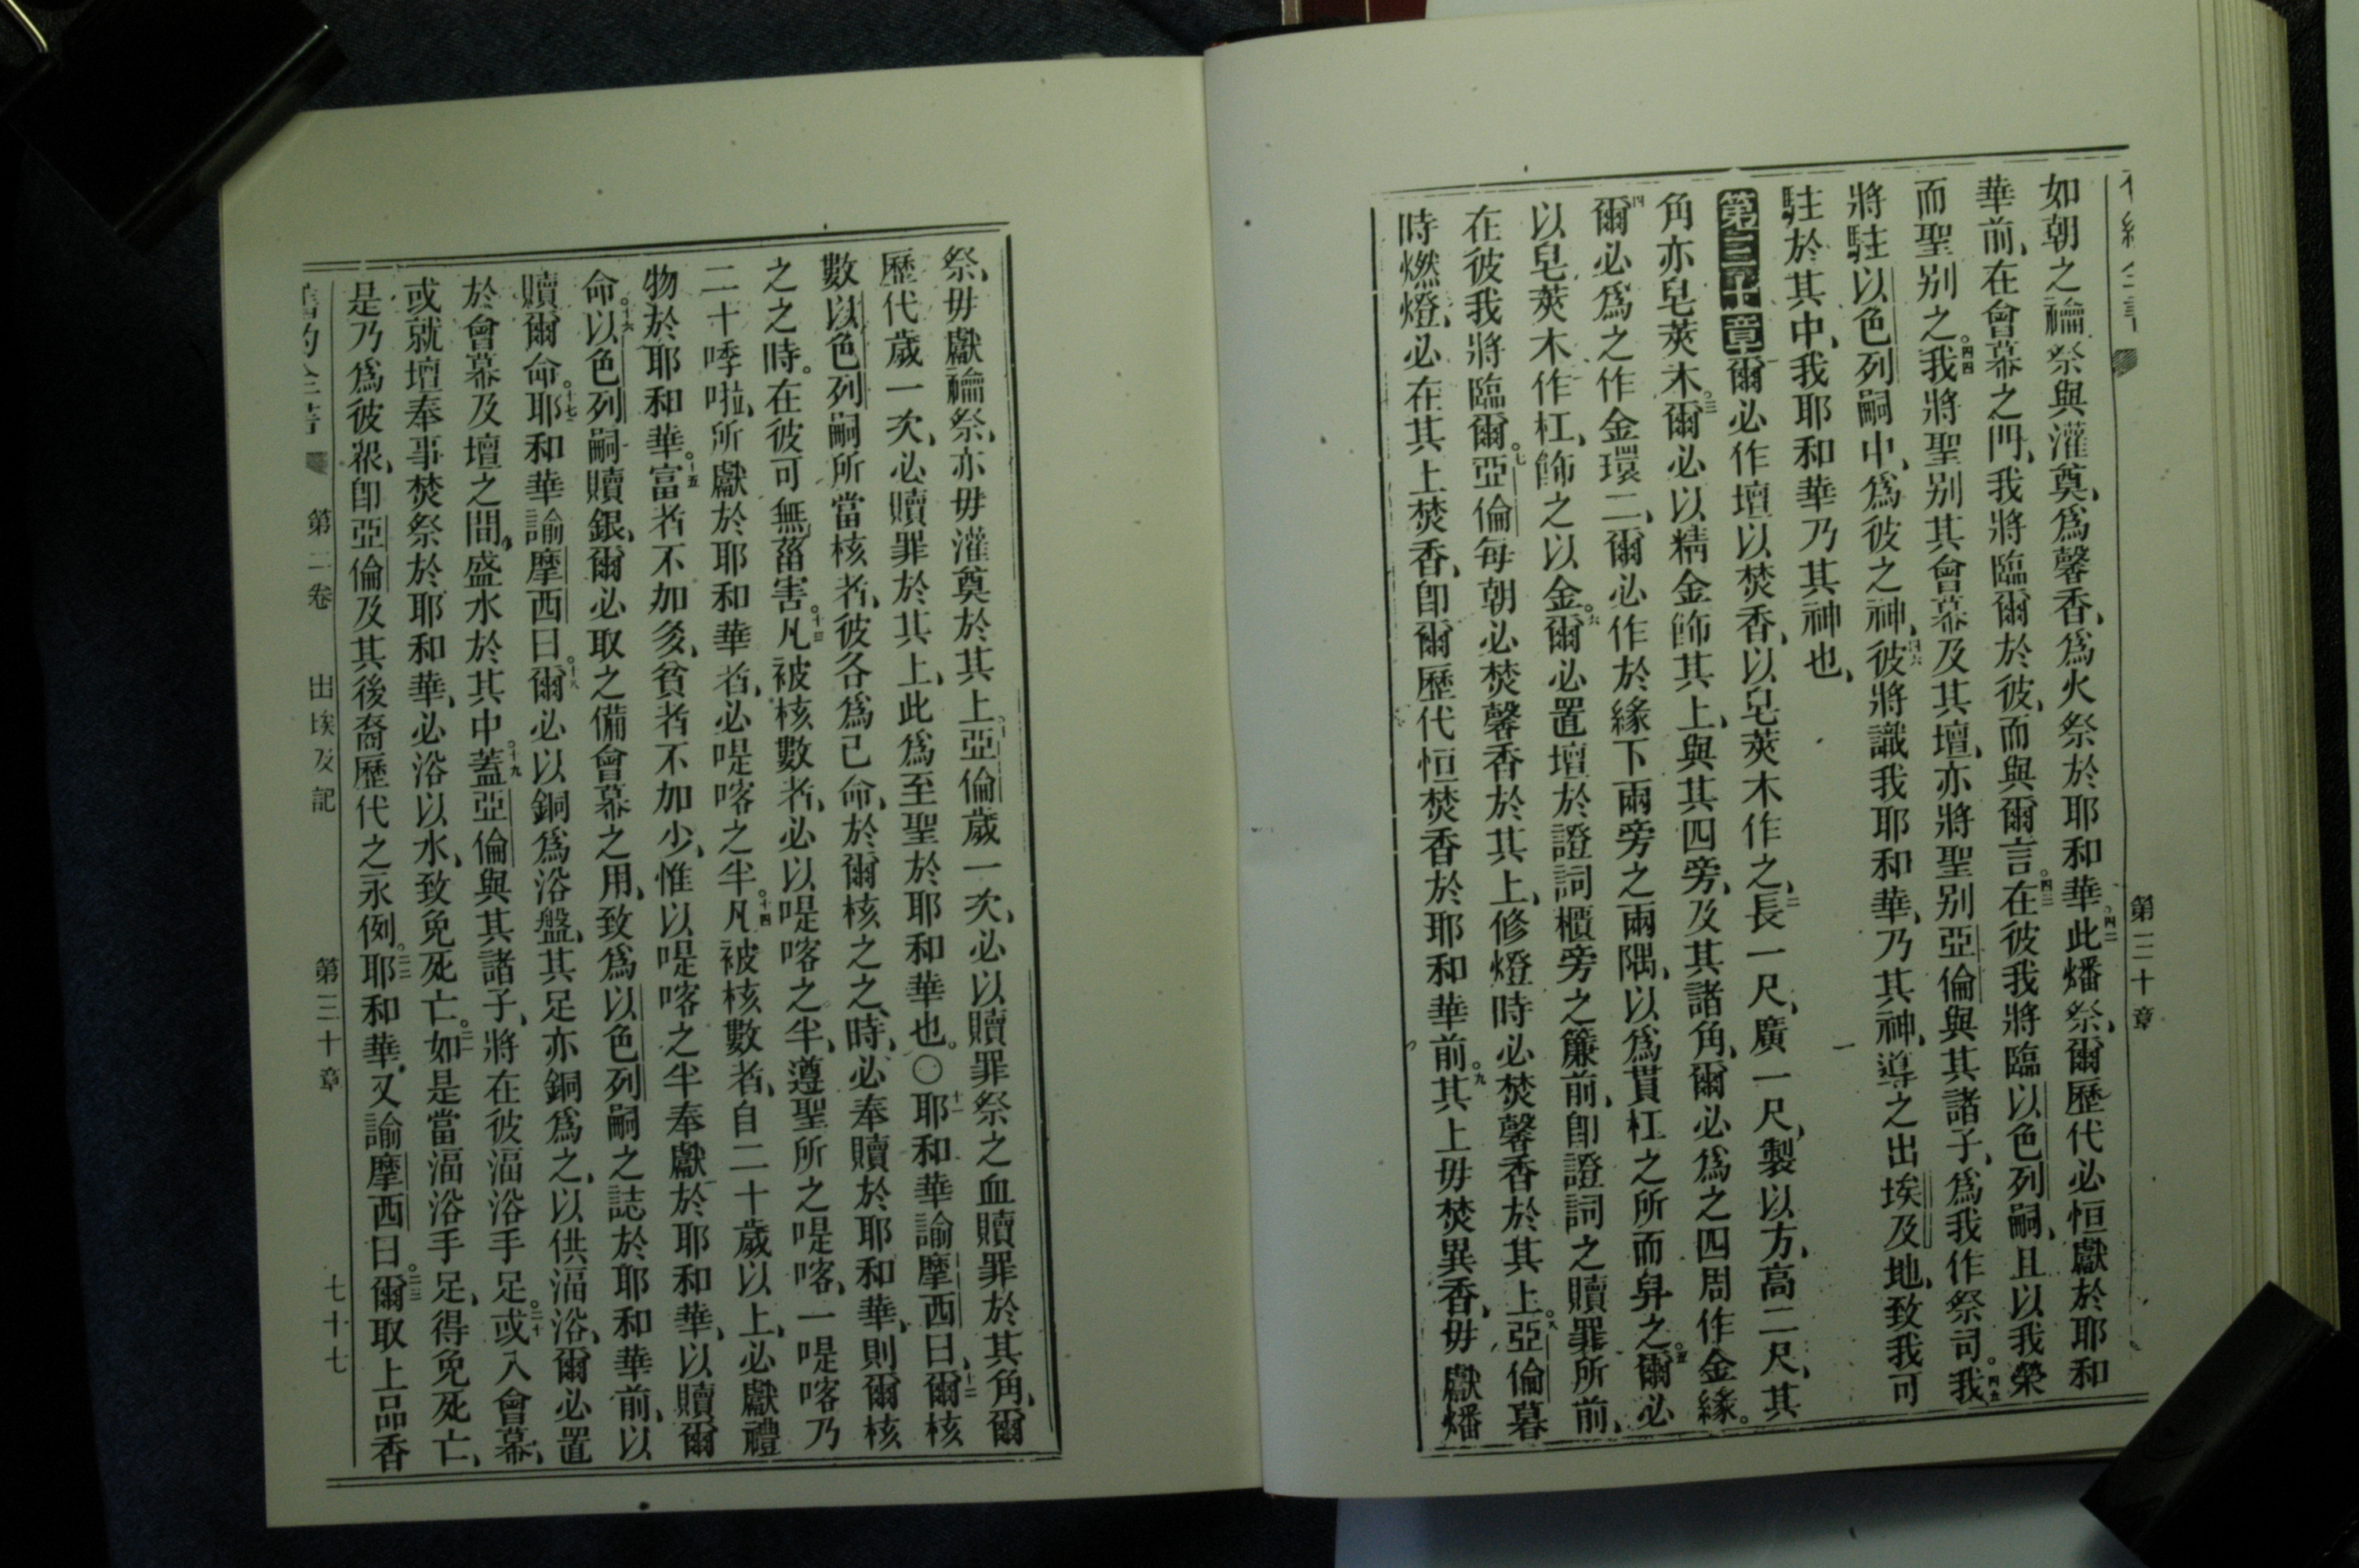 第三十章
如朝之禴祭與灌奠、爲馨香、爲火祭於耶和華。四二此燔祭、爾歷代必恒獻於耶和
華前、在會幕之門、我將臨爾於彼、而與爾言。四三在彼我將臨以色列嗣、且以我榮
而聖别之。四四我將聖别其會幕及其壇、亦將聖别亞倫與其諸子、爲我作祭司。四五我
將駐以色列嗣中、爲彼之神、四六彼將識我耶和華、乃其神、導之出埃及地、致我可
駐於其中、我耶和華乃其神也、
第三十章爾必作壇以焚香、以皂莢木作之、二長一尺、廣一尺、製以方、高二尺、其
角亦皂莢木。三爾必以精金飾其上、與其四旁、及其諸角、爾必爲之四周作金緣。
四爾必爲之作金環二、爾必作於緣下兩旁之兩隅、以爲貫杠之所而舁之。五爾必
以皂莢木作杠、飾之以金。六爾必置壇於證詞櫃旁之簾前、卽證詞之贖罪所前、
在彼我將臨爾。七亞倫每朝必焚馨香於其上、修燈時必焚馨香於其上。八亞倫暮
時燃燈、必在其上焚香、卽爾歷代恒焚香於耶和華前。九其上毋焚異香、毋獻燔
祭、毋獻禴祭、亦毋灌奠於其上。十亞倫歲一次、必以贖罪祭之血贖罪於其角、爾
歷代歲一次、必贖罪於其上、此爲至聖於耶和華也。〇十一耶和華諭摩西曰、十二爾核
數以色列嗣所當核者、彼各爲己命、於爾核之之時、必奉贖於耶和華、則爾核
之之時。在彼可無菑害。十三凡被核數者、必以㖷喀之半、遵聖所之㖷喀、一㖷喀乃
二十㖷啦、所獻於耶和華者、必㖷喀之半。十四凡被核數者、自二十歲以上、必獻禮
物於耶和華。十五富者不加多、貧者不加少、惟以㖷喀之半奉獻於耶和華、以贖爾
命。十六以色列嗣贖銀、爾必取之備會幕之用、致爲以色列嗣之誌於耶和華前、以
贖爾命。十七耶和華諭摩西曰。十八爾必以銅爲浴盤、其足亦銅爲之、以供湢浴、爾必置
於會幕及壇之間、盛水於其中。十九蓋亞倫與其諸子、將在彼湢浴手足。二十或入會幕、
或就壇奉事焚祭於耶和華、必浴以水、致免死亡。二一如是當湢浴手足、得免死亡、
是乃爲彼衆、卽亞倫及其後裔歷代之永例。二二耶和華、又諭摩西曰。二三爾取上品香
第二卷 出埃及記 第三十章 七十七